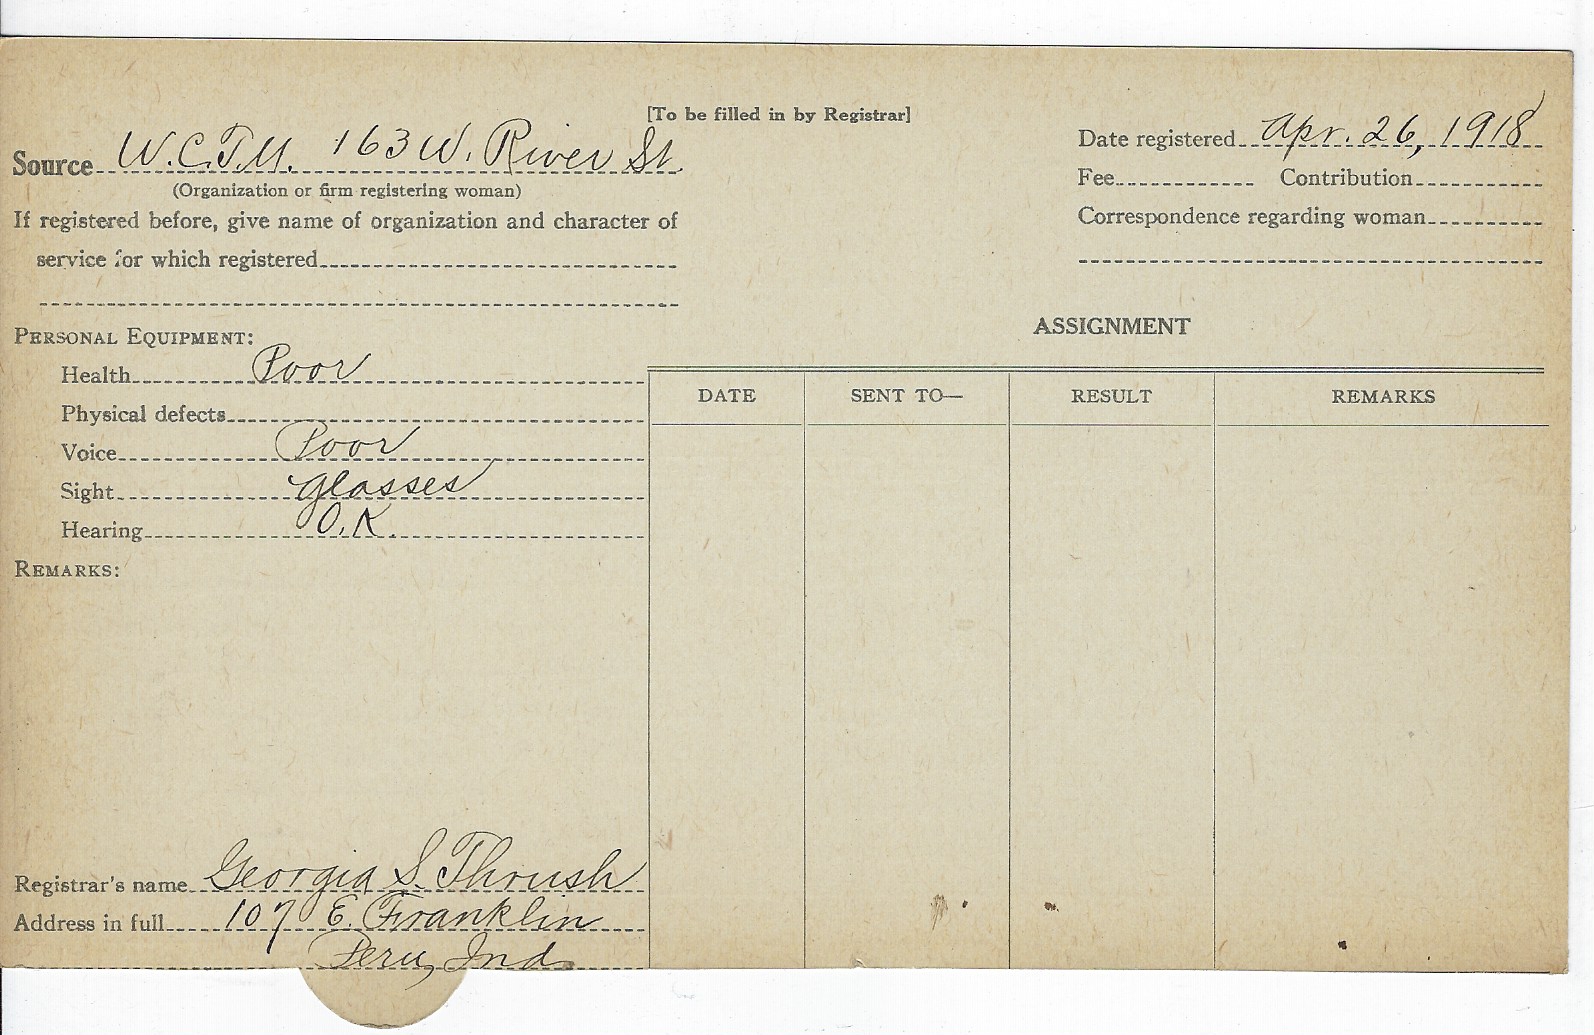 [To be filled in by Registrar]
Source W.C.T.U. 163 W. River St.
(Organization or firm registering woman)
If registered before, give name of organization and character of
service for which registered
Date registered Apr. 26, 1918
Fee Contribution
Correspondence regarding woman
PERSONAL EQUIPMENT:
Health Poor
Physical defects
Voice Poor
Sight Glasses
Hearing O.K.
REMARKS:
Registrar's name Georgia S. Thrush
Address in full 107 E. Franklin
Peru, Ind
ASSIGNMENT
DATE SENT TO— RESULT REMARKS